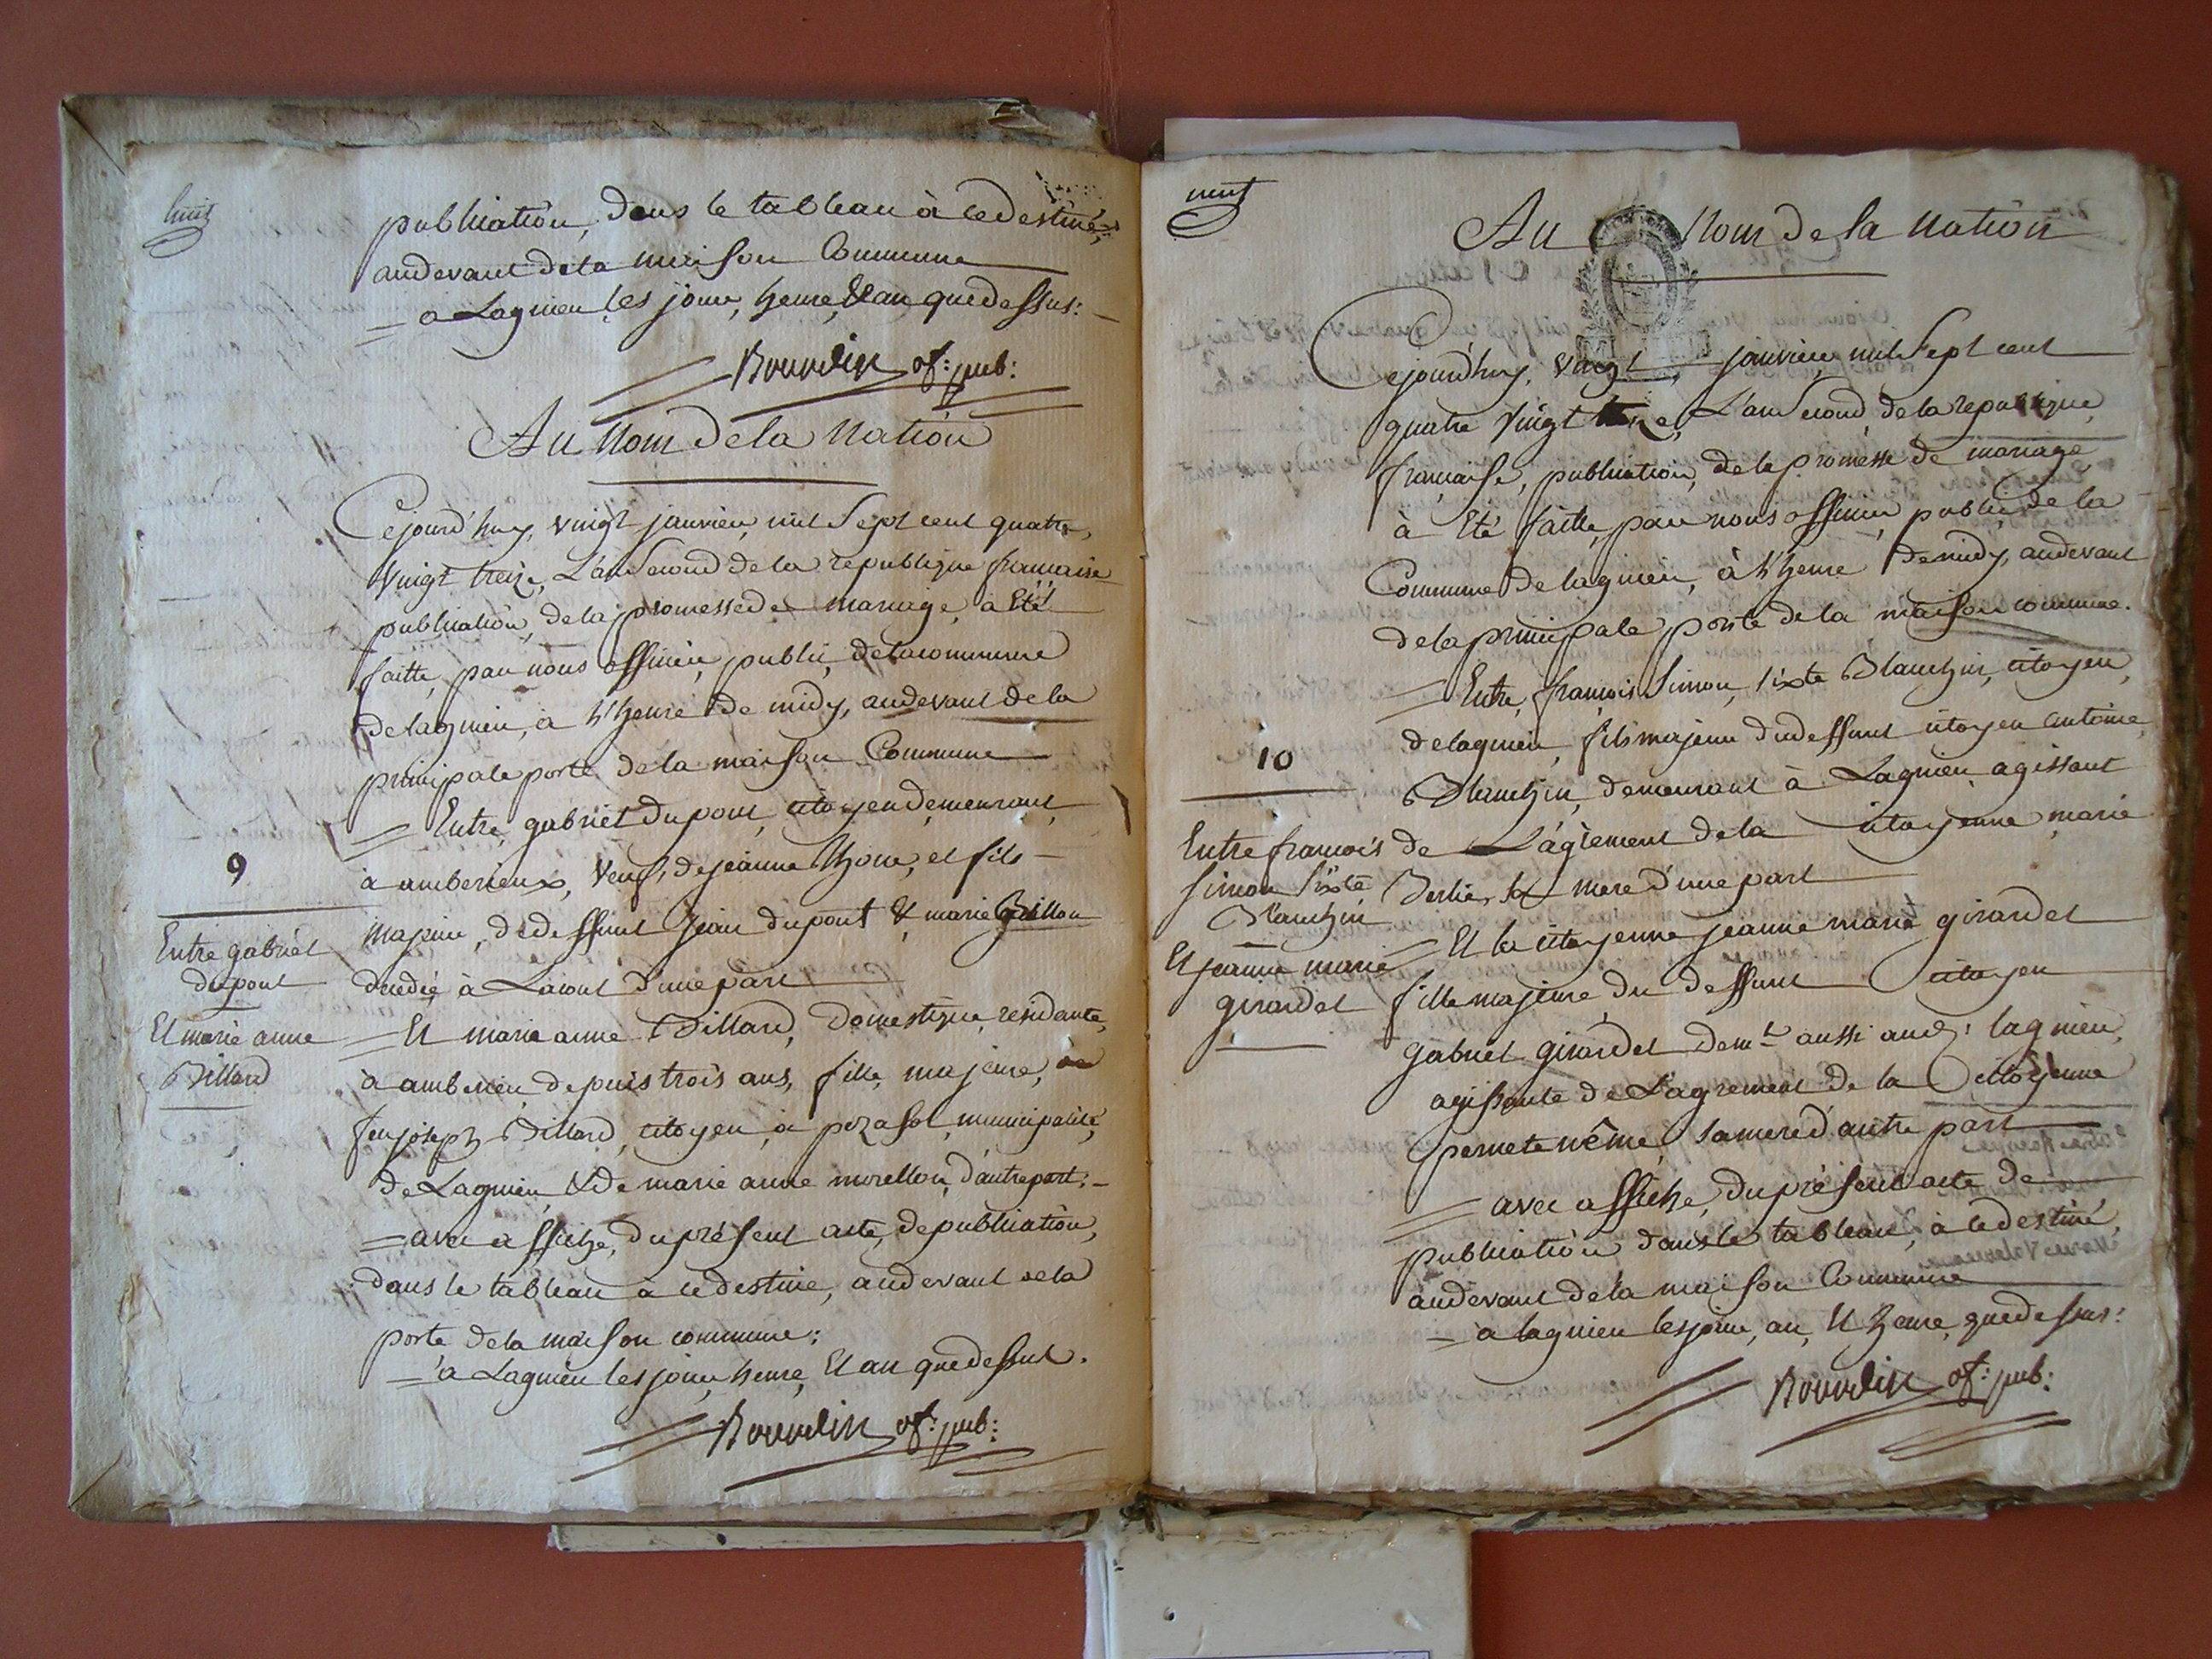 huit
publication, dans le tableau à ce destiné,
audevant de la maison Commune
= a Lagnieu les jour, heure, & an que dessus: -
Bourdin of: pub:
Au Nom de la Nation
Cejourd'huy, vingt janvier, mil Sept cent quatre,
vingt treize, L'an Second de la republique francaise
publication, de la promesse de mariage, à Eté
faitte, par nous officier, public, de la commune
de lagnieu, à l'heure de midy, audevant de la
principale porte de la maison Commune
= Entre, gabriël dupont, citoyen demeurant,
à amberieux, veuf, de jeanne , et fils -
9
majeur, de deffunt Jean dupont & marie
Entre gabriël
dupont
decedée à Lacout d'une part
Et marie anne
Billard
= Et marie anne Billard, Domestique, residante,
à amberieu, depuis trois ans, fille, majeure, de
feu joseph Billard, citoyen, à , municipalité,
de Lagnieu, & de marie anne morellon, d'autre part: -
= avec affiche, du présent acte, de publication,
dans le tableau à ce destiné, audevant de la
porte de la maison commune:
= a Lagnieu les jour, heure, Et an que dessus.
Bourdin of: pub:
neuf
Au Nom de la Nation
Cejourd'huy, vingt, janvier, mil Sept cent
quatre vingt treize, L'an Second, de la republique,
française, publication, de la promesse de mariage
à Eté faitte, par nous officier public, de la
Commune de lagnieu, à l'heure de midy, audevant
de la principale porte de la maison commune.
= Entre, françois Simon, Sixte Blanchin, citoyen,
de lagnieu, fils majeur du deffunt citoyen antoine
10
Blanchin, demeurant à Lagnieu agissant
Entre francois
Simon Sixte
Blanchin
de L'agrément de la citoyenne marie
, sa mere d'une part
Et jeanne marie
girardet
= Et la citoyenne jeanne marie girardet
fille majeure, du deffunt citoyen
gabriel girardet demt. aussi aud: lagnieu,
agissante de L'agrement de la Citoyenne
pernete même, sa mere d'autre part
= avec affiche, du présent acte de
publication dans le tableau, à ce destiné,
audevant de la maison Commune
= a lagnieu les jour, an, Et heure, que dessus:
Bourdin of: pub: